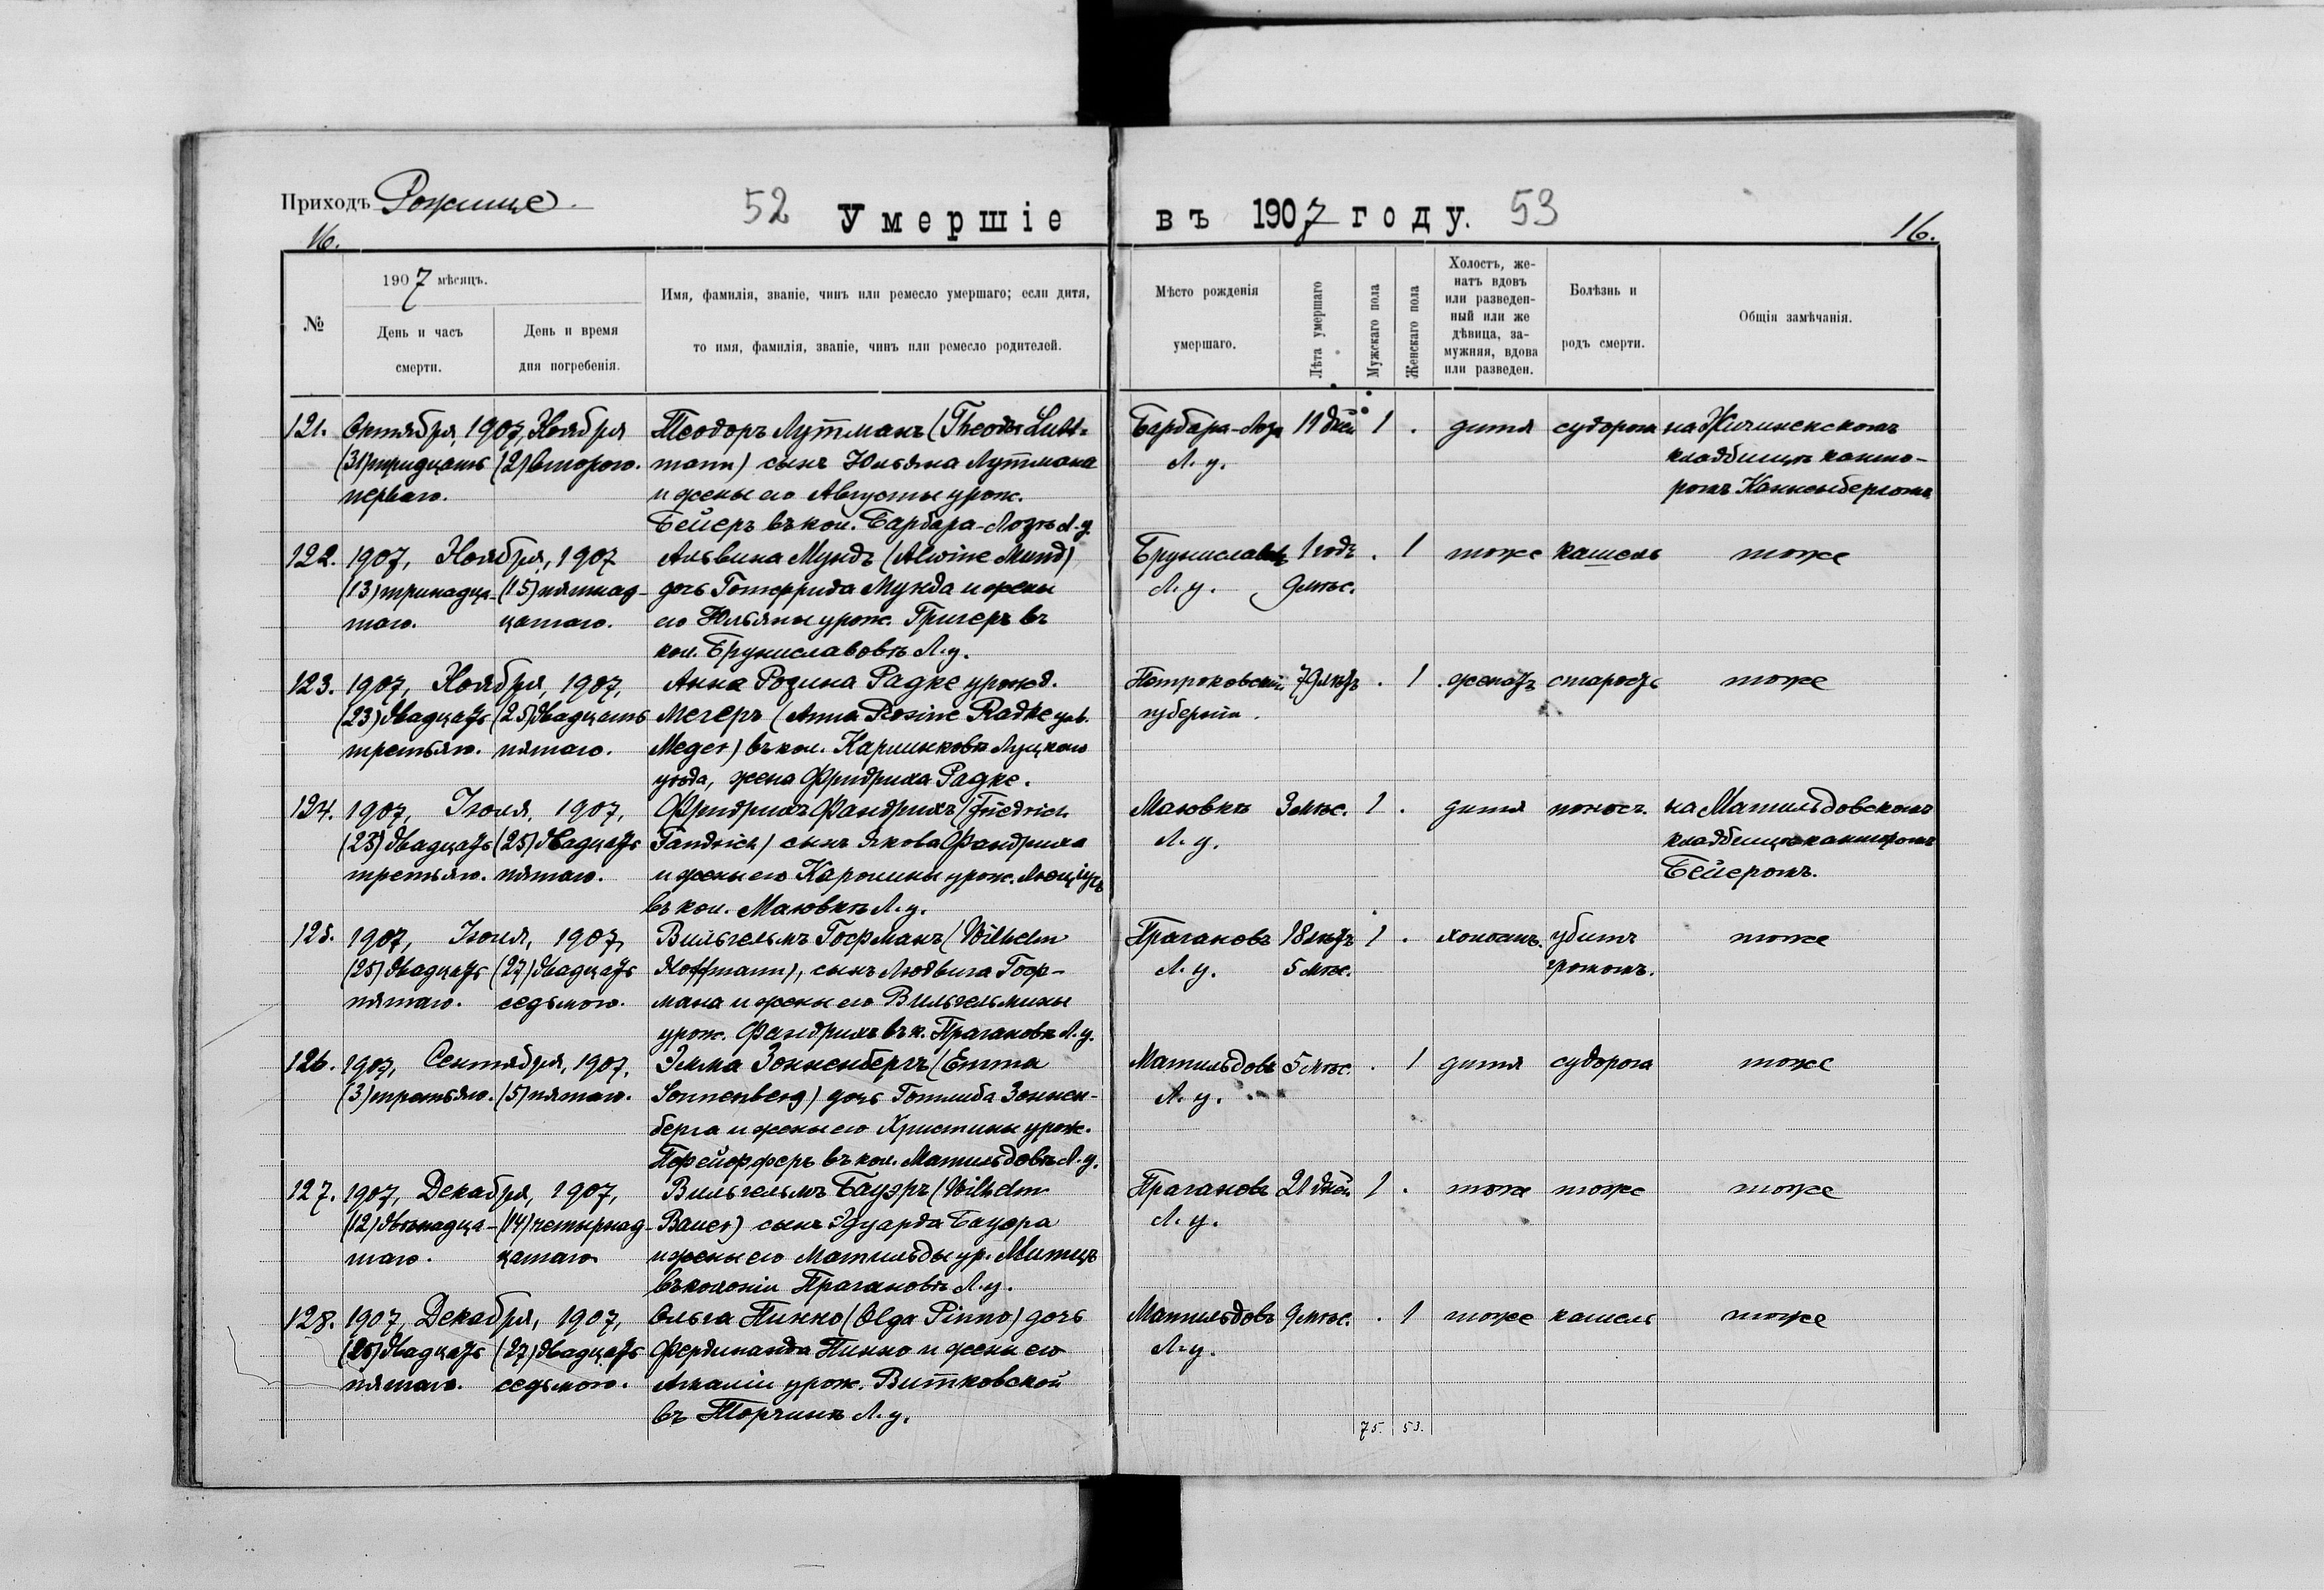 Приходъ Рожище
52 Умершіе въ 1907 году. 53
16. 16.
№
1907 мѣсяцъ.
День и часъ смерти.
День и время дня погребенія.
Имя, фамилія, званіе, чинъ или ремесло умершаго; если дитя,
то имя, фамилія, званіе, чинъ или ремесло родителей.
Мѣсто рожденія
умершаго.
Лѣта умершаго
Мужскаго пола
Женскаго пола
Холостъ, же-
натъ вдовъ
или разведен-
ный или же
дѣвица, за-
мужняя, вдова
или разведен.
Болѣзнь и
родъ смерти.
Общія замѣчанія.
121. Октября, 1907, Ноября Теодоръ Лутманъ (Theodor Lutt- Барбара-Лоза 11 дней 1 . дитя судорога на
(31) тридцать (2) втораго. mann) сынъ Юльяна Лутмана Л. у. кладбищѣ канто-
перваго. и жены его Августы урож. ромъ
Бейеръ въ кол. Барбара-Лозѣ Л. у.
122. 1907, Ноября, 1907 Альвина Мундъ (Alwine Mund) Бруниславовъ 1 годъ . 1 тоже кашель тоже
(13) тринадца- (15) пятнад- дочь Готфрида Мунда и жены Л. у. 9 мѣс.
таго. цатаго. его Юльяны урож. Григеръ въ
кол. Бруниславовѣ Л. у.
123. 1907, Ноября, 1907, Анна Розина Радке урожд. Петроковской 79 лѣтъ . 1 старость тоже
(23) двадцать (25) двадцать Мегеръ (Anna Rosine Radke geb. губерніи.
третьяго. пятаго. Meger) въ кол. Карлинковѣ Луцкаго
уѣзда, жена Фридриха Радке.
124. 1907, Іюля, 1907, Фридрихъ Фандрихъ (Friedrich Маювкѣ 3 мѣс. 1 . дитя поносъ. на Матильдовскомъ
(23) двадцать (25) двадцать Fandrich) сынъ Якова Фандриха Л. у. кладбищѣ канторомъ
третьяго. пятаго. и жены его Каролины урож. Бейеромъ.
въ кол. Маювкѣ Л. у.
125. 1907, Іюля, 1907, Вильгельмъ Гофманъ (Wilhelm Прагановъ 18 лѣтъ 1 . холостъ. убитъ тоже
(25) двадцать (27) двадцать Hoffmann), сынъ Людвига Гоф- Л. у. 5 мѣс. громомъ.
пятаго. седьмого. мана и жены его Вильгельмины
урож. Фандрихъ въ к. Прагановѣ Л. у.
126. 1907, Сентября, 1907, Эмма Зонненбергъ (Emma Матильдовъ 5 мѣс. . 1 дитя судорога тоже
(3) третьяго. (5) пятаго. Sonnenberg) дочь Готлиба Зоннен- Л. у.
берга и жены его Христины урож.
Пфейфферъ въ кол. Матильдовѣ Л. у.
127. 1907, Декабря, 1907, Вильгельмъ Бауэръ (Wilhelm Прагановъ 21 дней 1 . тоже тоже тоже
(12) двѣнадца- (14) четырнад- Bauer) сынъ Эдуарда Бауэра Л. у.
таго. цатаго и жены его Матильды ур. Митцъ
въ колоніи Прагановѣ Л. у.
128. 1907, Декабря, 1907, Ольга Пинно (Olga Pinno) дочь Матильдовъ 9 мѣс. . 1 тоже кашель тоже
(25) двадцать (27) двадцать Фердинанда Пинно и жены его Л. у.
пятаго. седьмого. Амаліи урож. Витковской
въ Торчинѣ Л. у.
75. 53.